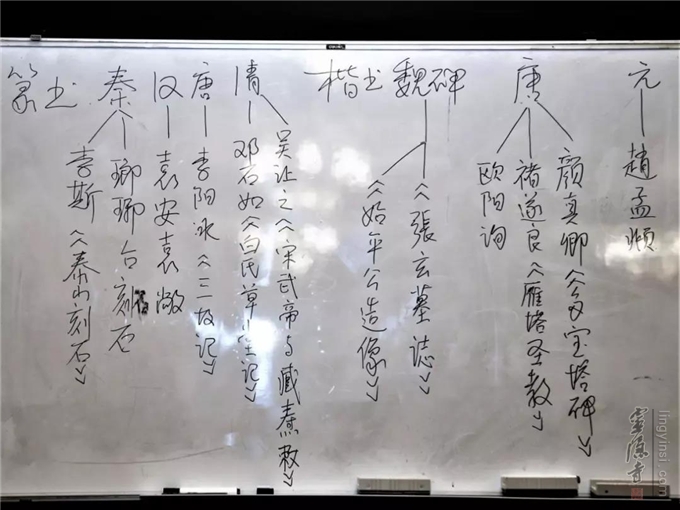 篆书
秦
李斯《泰山刻石》
瑯琊台刻石
汉
袁安袁敞
唐
李阳冰《三坟记》
清
邓石如《白氏草堂记》
吴让之《宋武帝与臧焘敕》
楷书
魏碑
《始平公造像》
《張玄墓誌》
唐
欧阳询
褚遂良《雁塔圣教》
颜真卿《多宝塔碑》
元
趙孟頫
靈隱寺
lingyinsi.com